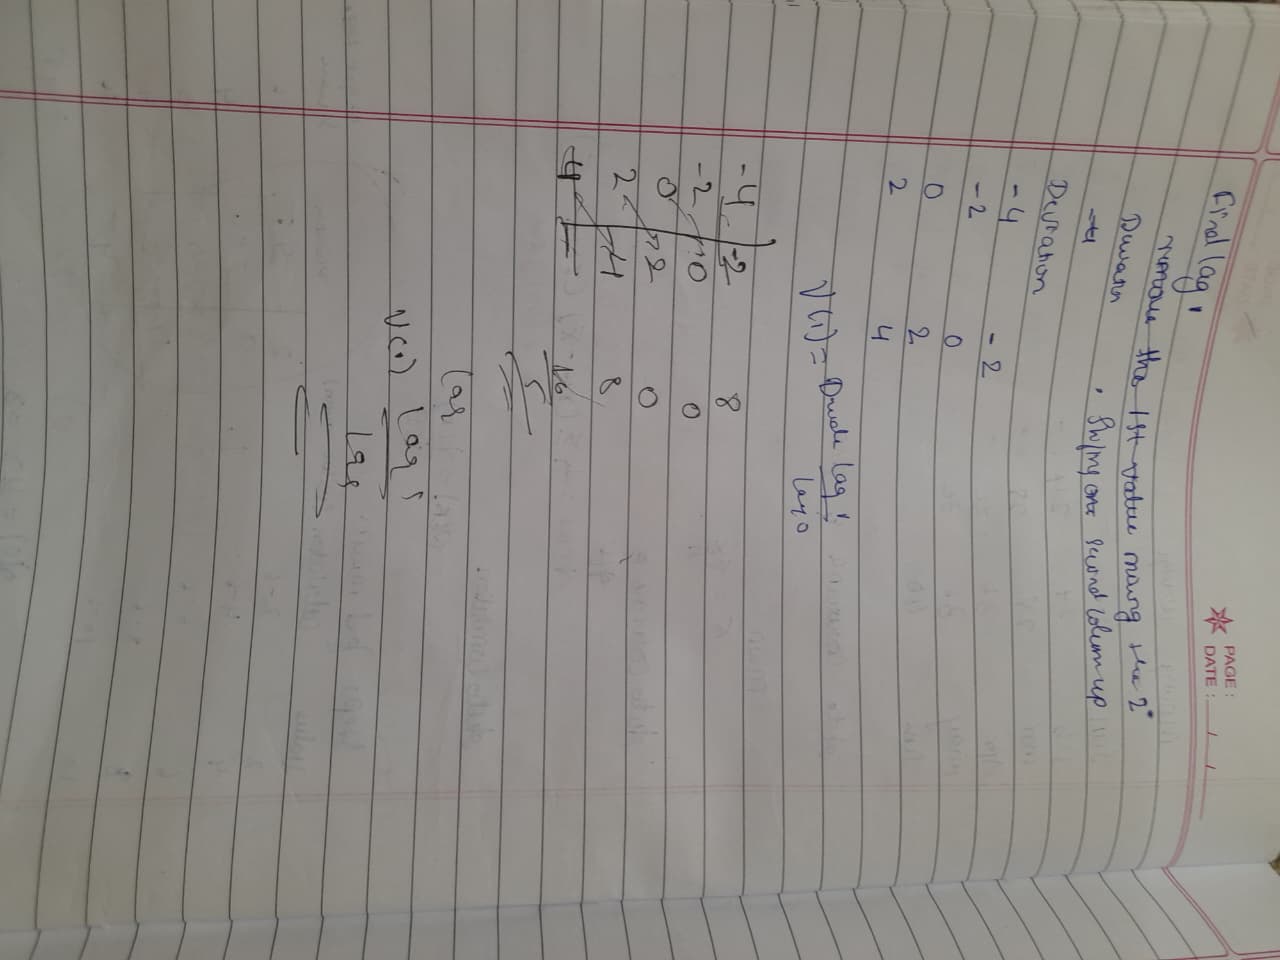 PAGE:
DATE: / /
Find lag 1
remove the 1st value the 2°
second column up
-4
Deviation
-4
-2 -2
0 0
2 2
4
V(1) = Divide lag 1
lag 0
-4 -2 8
-2 0 0
0 2 0
2 4 8
4 16
5
lag
V(1) lag 1
lag